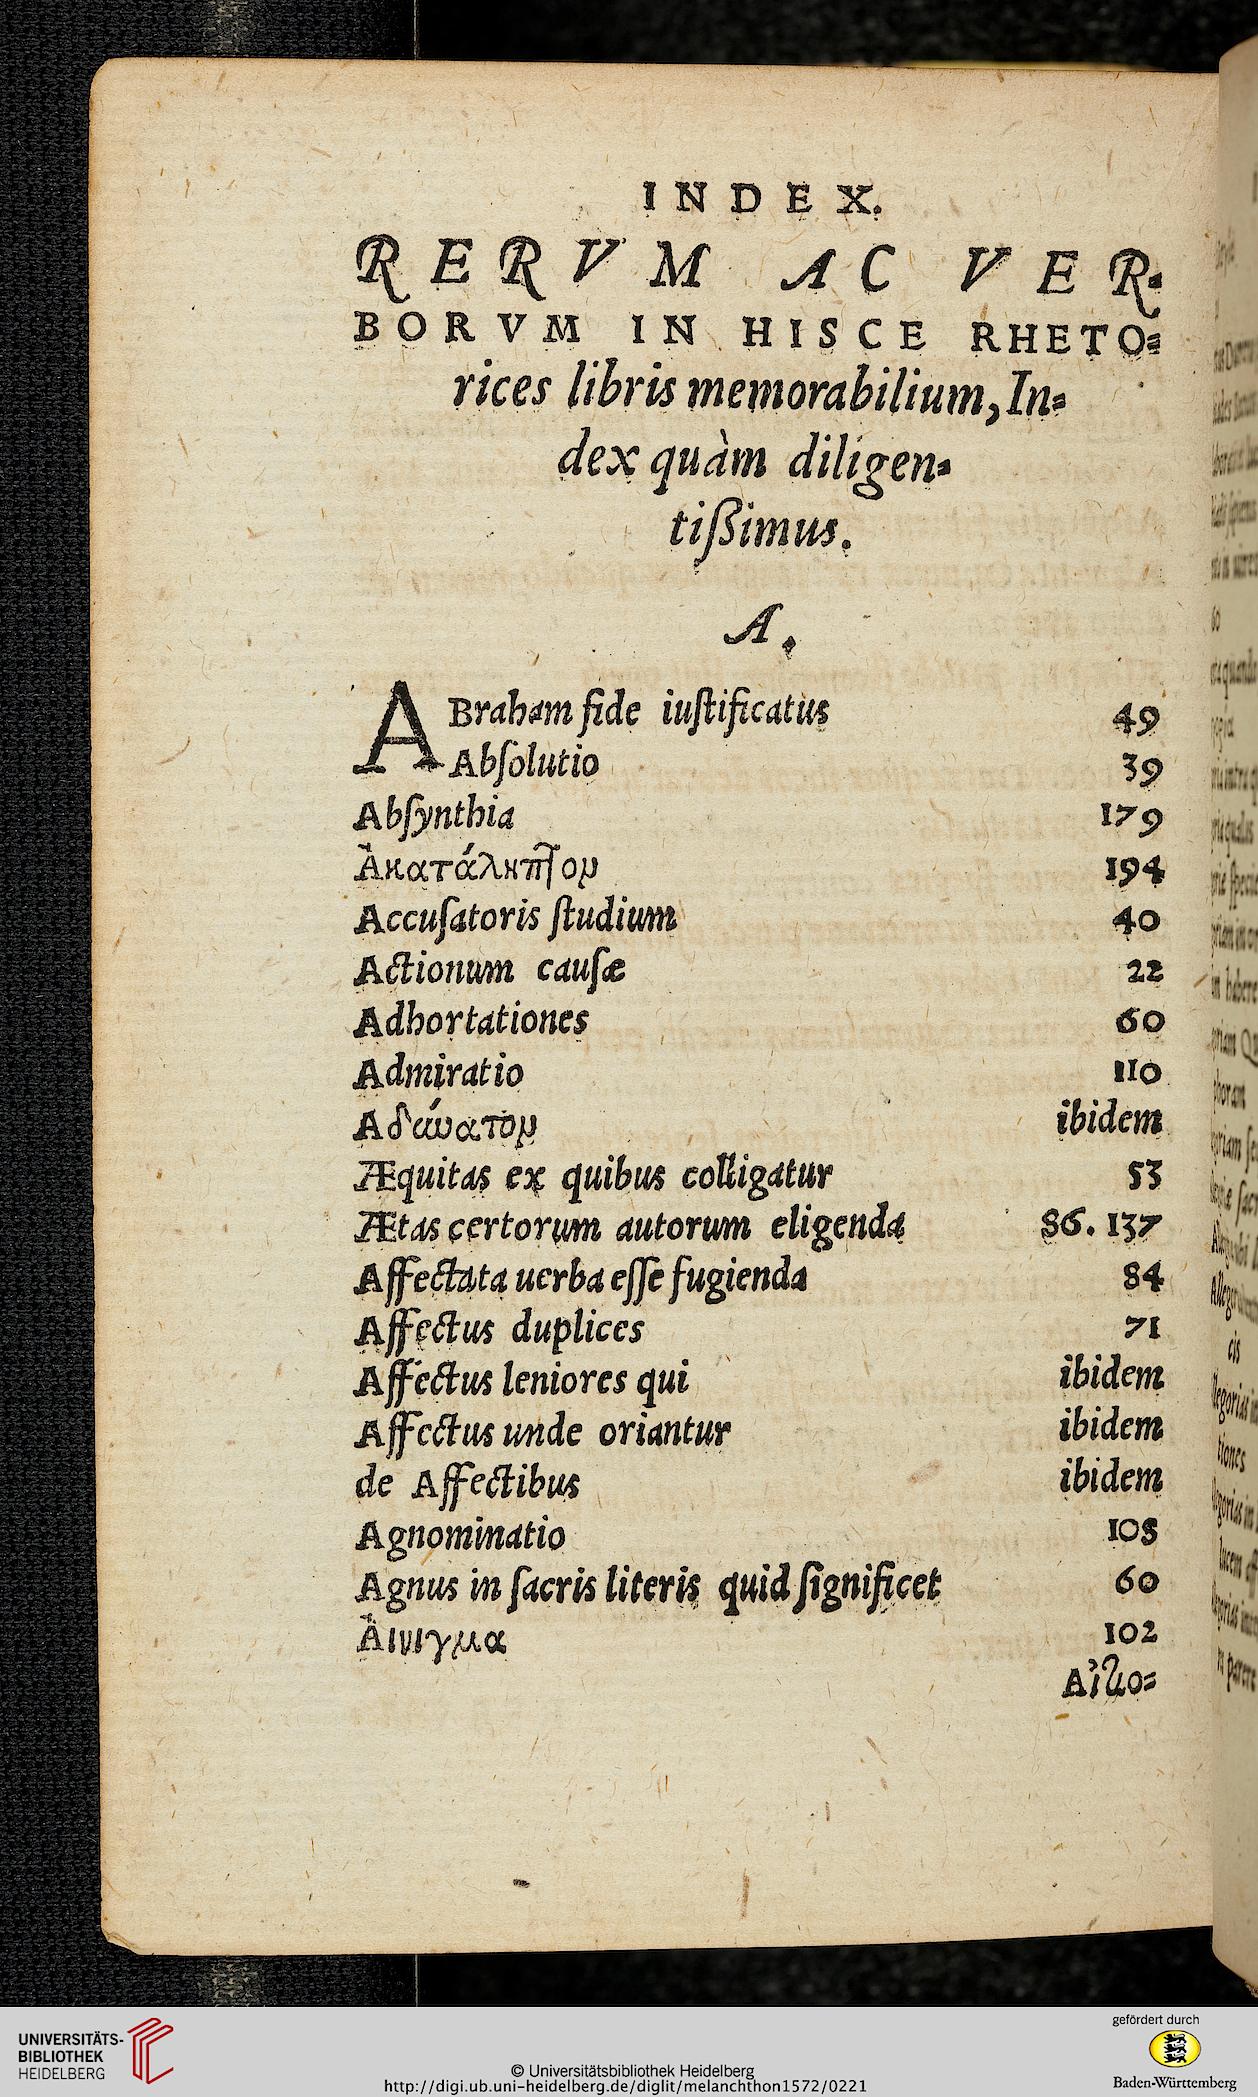 INDEX.
RERVM AC VER-
BORVM IN HISCE RHETO-
rices libris memorabilium, In-
dex quàm diligen-
tißimus.
A.
ABraham fide iuſtificatus 49
Abſolutio 39
Abſynthia 179
Ἀκατάληπτον 194
Accuſatoris ſtudium 40
Actionum cauſæ 22
Adhortationes 60
Admiratio 110
Αδύνατον ibidem
Æquitas ex quibus colligatur 53
Ætas certorum autorum eligenda 86. 137
Affectata uerba eſſe fugienda 84
Affectus duplices 71
Affectus leniores qui ibidem
Affectus unde oriantur ibidem
de Affectibus ibidem
Agnominatio 108
Agnus in ſacris literis quid ſignificet 60
Ἀινιγμα 102
UNIVERSITÄTS-
BIBLIOTHEK
HEIDELBERG
© Universitätsbibliothek Heidelberg
http://digi.ub.uni-heidelberg.de/diglit/melanchthon1572/0221
gefördert durch
Baden-Württemberg